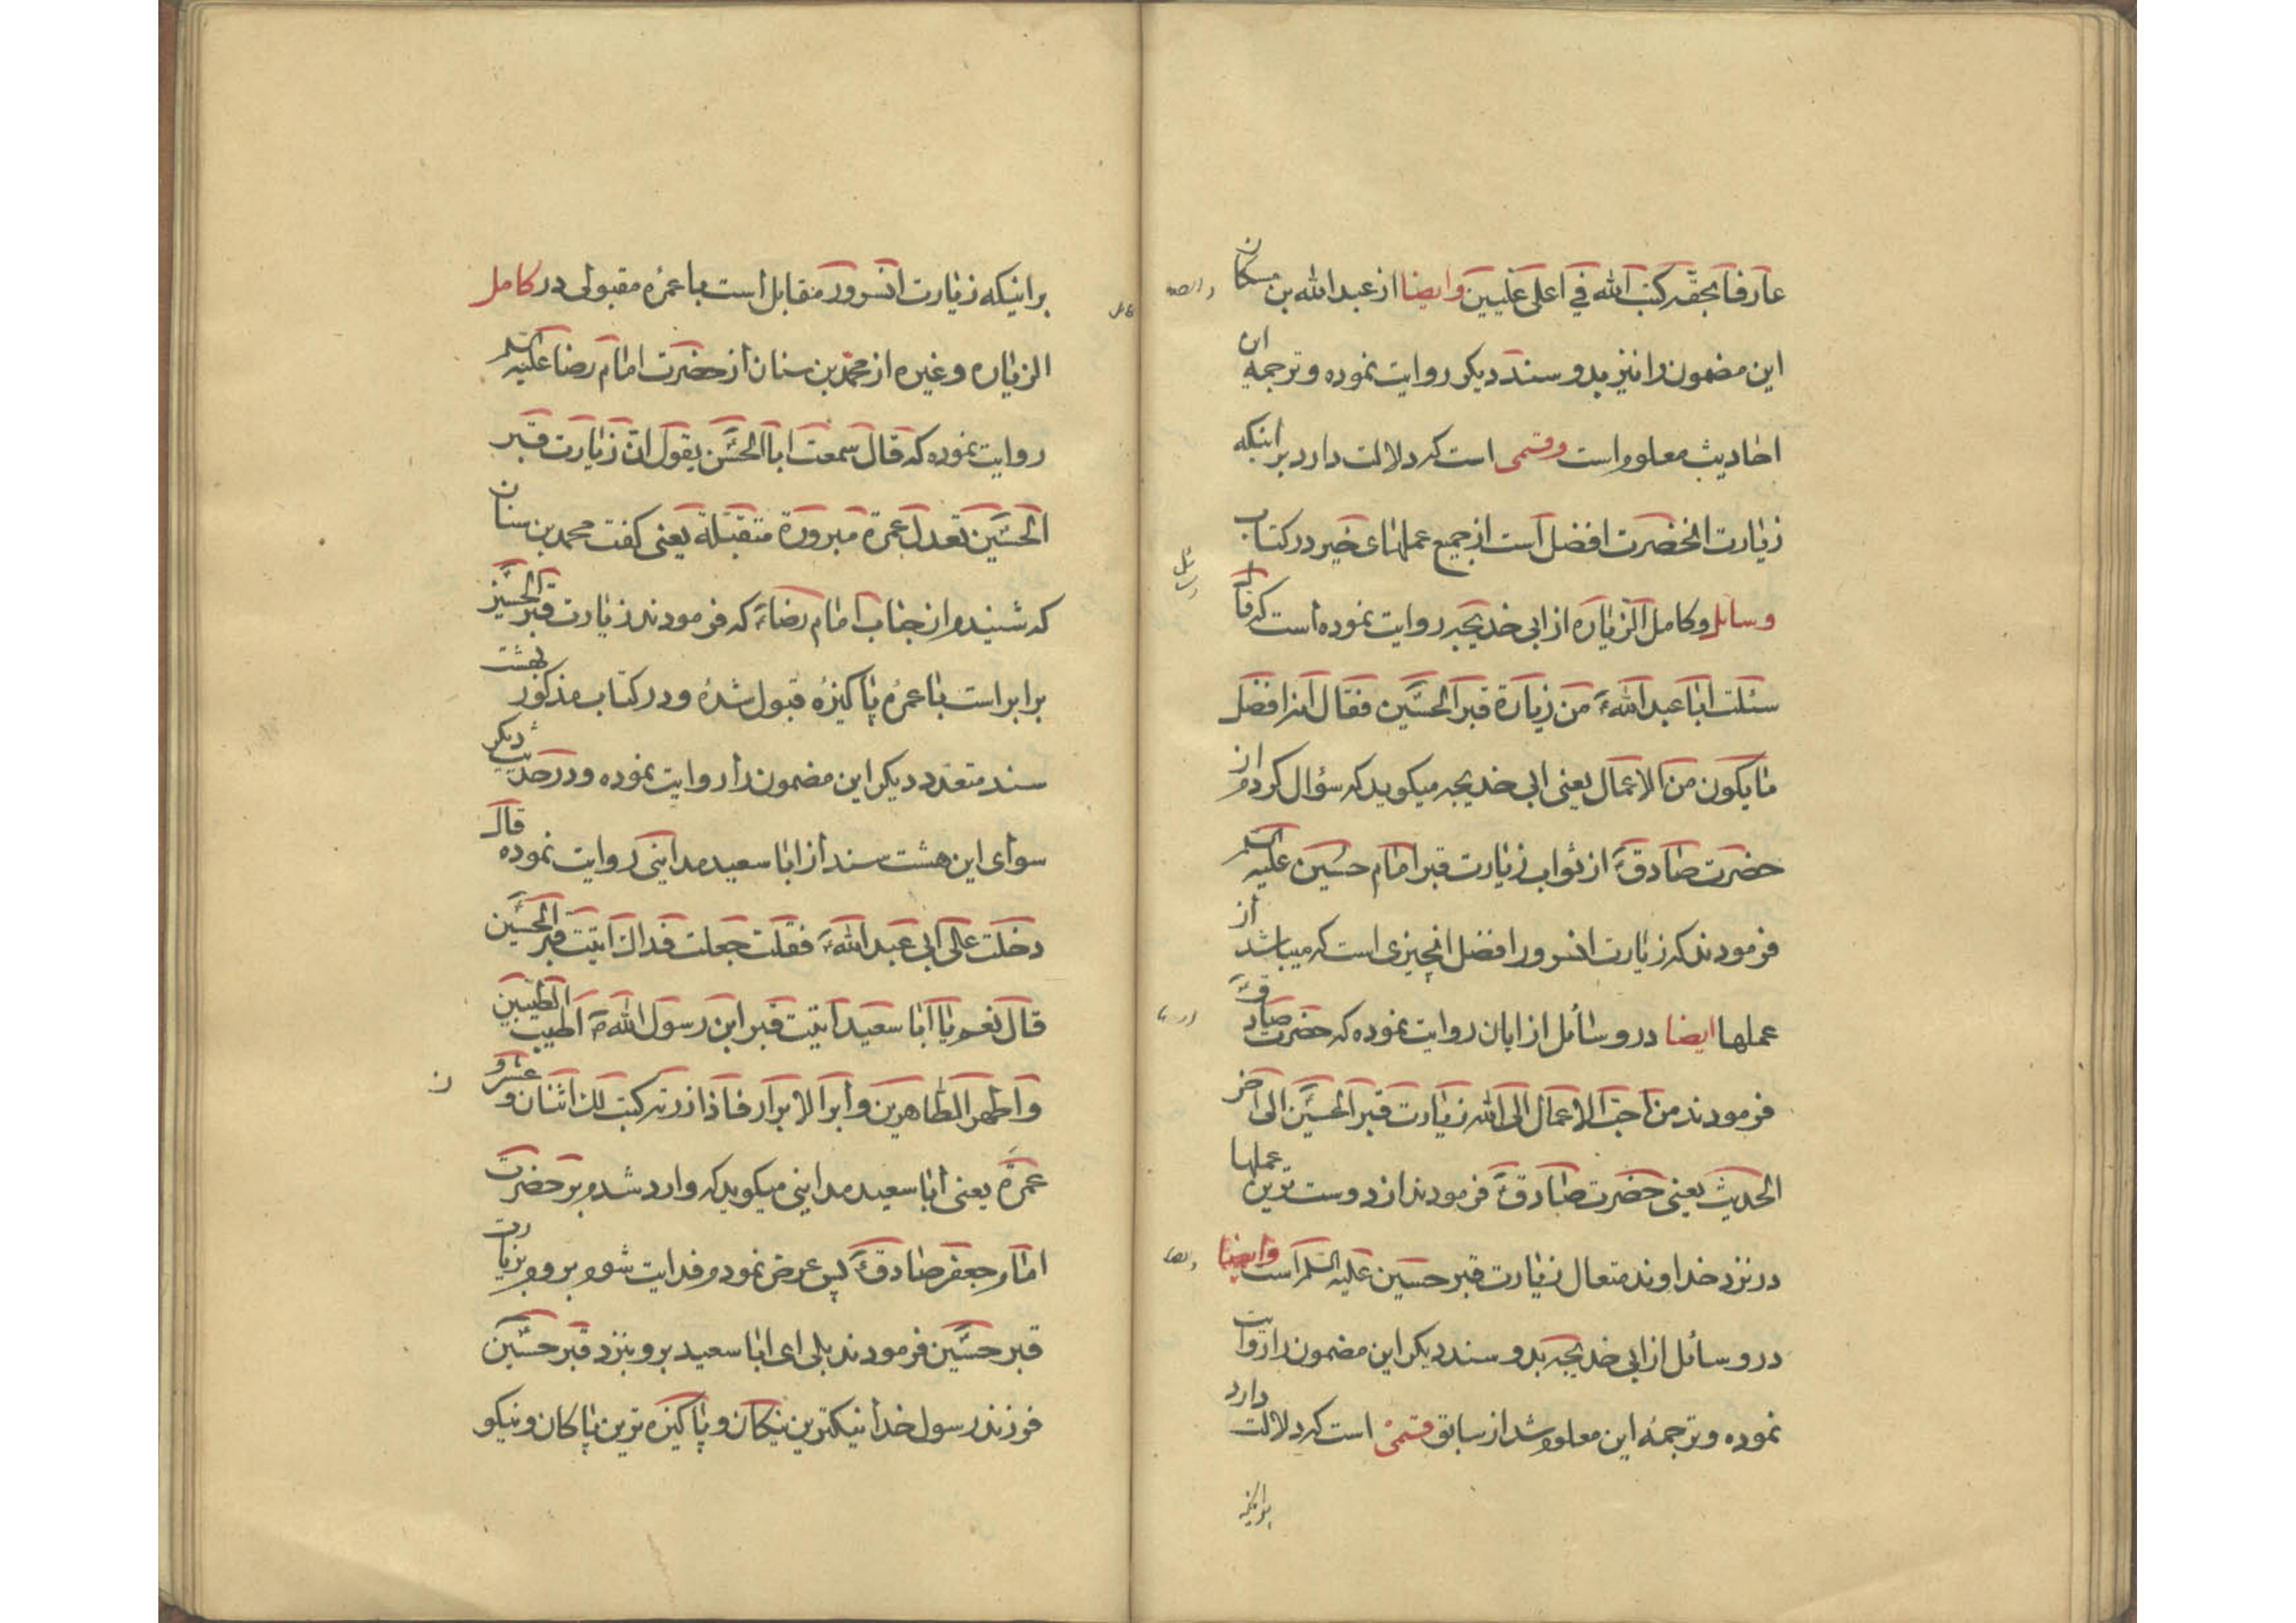 عارفا بحقه کتب الله فی اعلی علیین وایضا از عبدالله بن مسکان
این مضمون را نیز بدو سند دیکر روایت نموده و ترجمه ان
احادیث معلوم است وقسمی است که دلالت دارد بر اینکه
زیارت انحضرت افضل است از جمیع عملهای خیر در کتاب
وسائل و کامل الزیاره از ابی خدیجه روایت نموده است که قال
سئلت ابا عبد الله ع من زیارة قبر الحسین فقال انه افضل
ما یکون من الاعمال یعنی ابی خدیجه میکوید که سؤال کردم از
حضرت صادق ع از ثواب زیارت قبر امام حسین علیه السلم
فرمودند که زیارت انسرور افضل انچیزی است که میباشد از
عملها ایضا در وسائل از ابان روایت نموده که حضرت صادق ع
فرمودند من احب الاعمال الی الله زیارت قبر الحسین الی اخر
الحدیث یعنی حضرت صادق ع فرمودند از دوست ترین عملها
در نزد خداوند متعال زیارت قبر حسین علیه السلم است وایضا
در وسائل از ابی خدیجه بدو سند دیکر این مضمون را روایت
نموده و ترجمه این معلوم شد از سابق قسمی است که دلالت دارد
بر اینکه
بر اینکه زیارت انسرور مقابل است با عمره مقبولی در کامل
الزیاره و غیره از محمد بن سنان از حضرت امام رضا علیه السلم
روایت نموده که قال سمعت ابا الحسن یقول ان زیارت قبر
الحسین تعدل عمرة مبرورة متقبلة یعنی کفت محمد بن سنان
که شنیدم از جناب امام رضا ع که فرمودند زیارت قبر الحسین
برابر است با عمره پاکیزه قبول شده و در کتاب مذکور بهشت
سند متعدد دیکر این مضمون را روایت نموده و در حدیث دیکر
سوای این هشت سند از ابا سعید مداینی روایت نموده قال
دخلت علی ابی عبد الله ع فقلت جعلت فداک ایتیت قبر الحسین
قال نعم یا ابا سعید ایتیت قبر ابن رسول الله ص اطیب الطیبین
و اطهر الطاهرین و ابر الابرار فاذا زرته کتب لک اثنان و عشرو ن
عمرة یعنی ابا سعید مداینی میکوید که وارد شدم بر حضرت
امام جعفر صادق ع پس عرض نمودم فدایت شوم بروم بزیارت
قبر حسین فرمودند بلی ای ابا سعید برو بنزد قبر حسین
فرزند رسول خدا نیکترین نیکان و پاکیزه ترین پاکان و نیکو